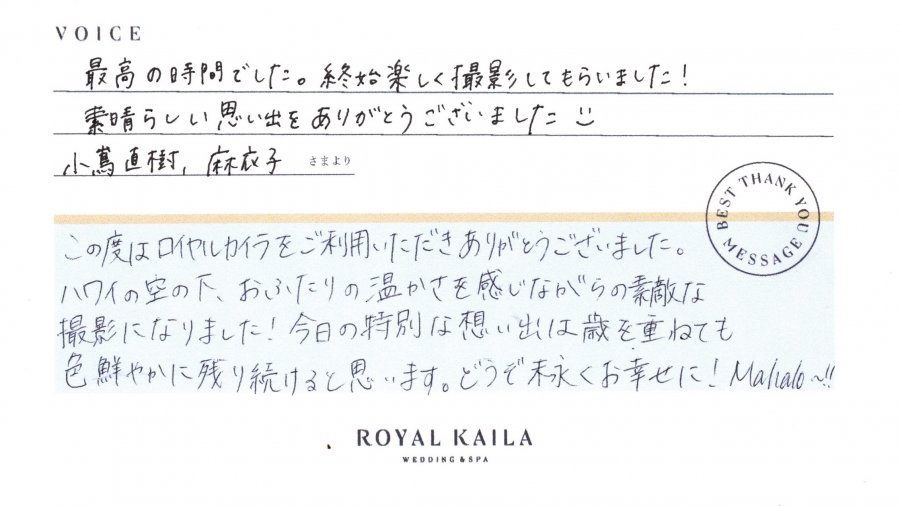 VOICE
最高の時間でした。終始楽しく撮影してもらいました!
素晴らしい思い出をありがとうございました
小嶌直樹, 麻衣子 さまより
BEST THANK YOU MESSAGE
この度はロイヤルカイラをご利用いただきありがとうございました。
ハワイの空の下、おふたりの温かさを感じながらの素敵な
撮影になりました!今日の特別な想い出は歳を重ねても
色鮮やかに残り続けると思います。どうぞ末永くお幸せに! Mahalo~!!
ROYAL KAILA
WEDDING & SPA